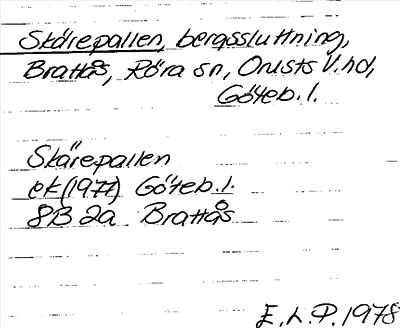 Skärepallen, bergssluttning,
Brattås, Röra sn, Orusts V. hd,
Göteb. l.
Skärepallen
ek (1977) Göteb. l.
8B 2a Brattås
E. L. P. 1978